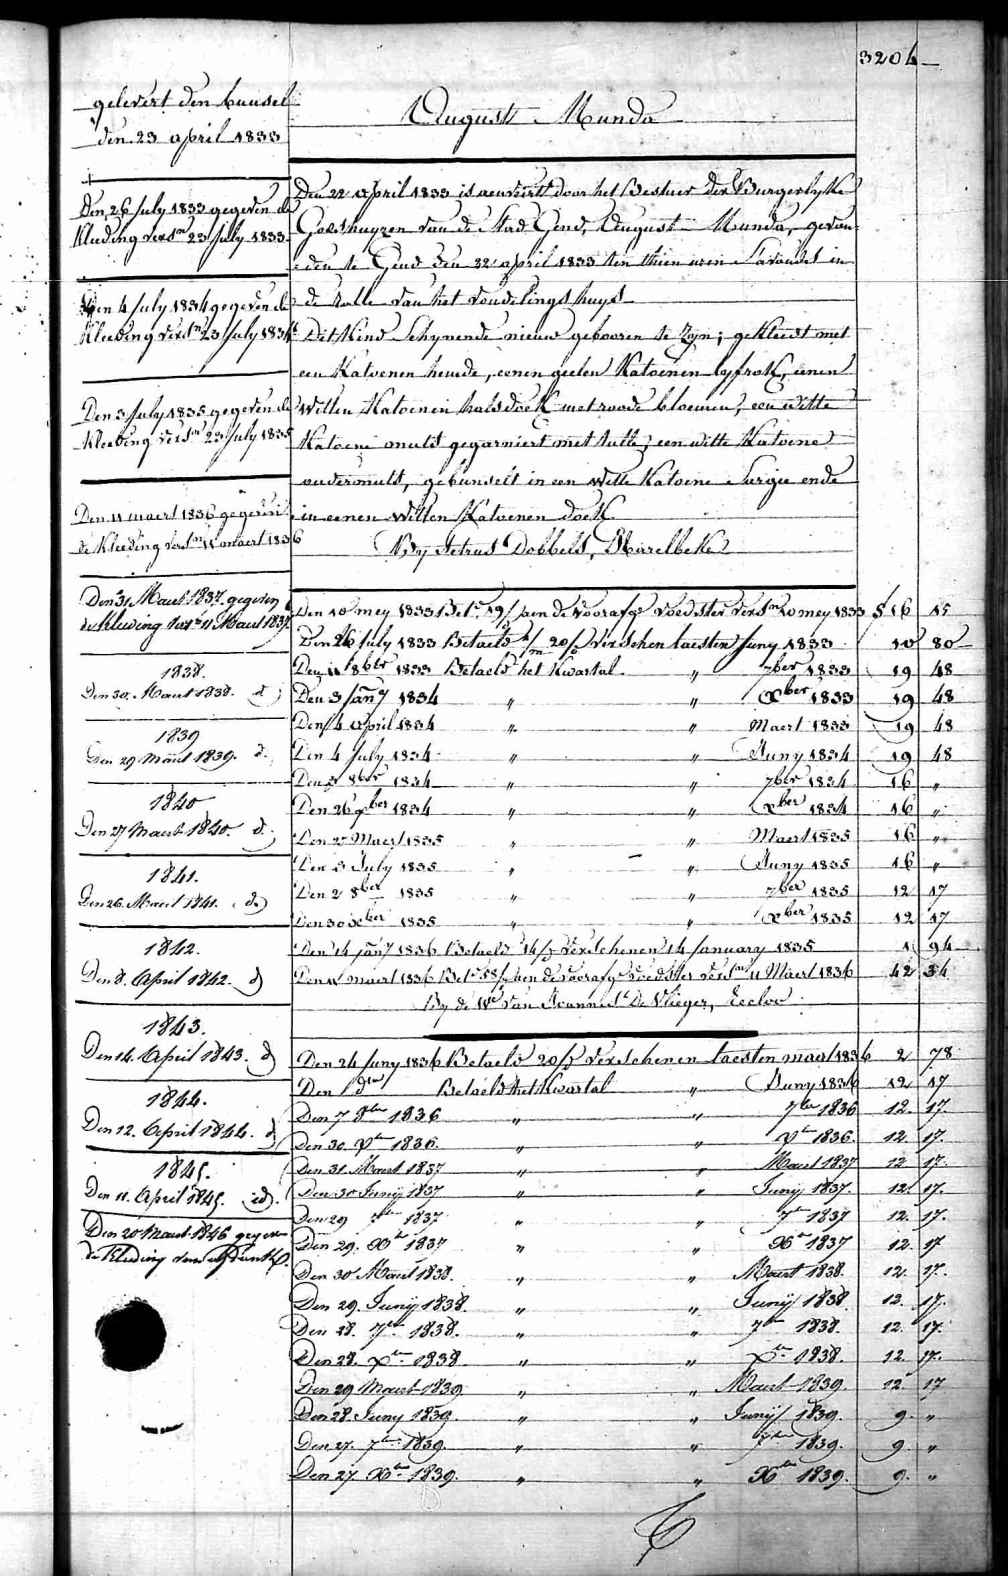 3204
gelevert den bunsel
den 23 april 1833
Den 26 July 1833 gegeven de
Kleeding vers.<sup>m</sup> 23 July 1833
Den 4 July 1834 gegeven de
Kleeding vers.<sup>m</sup> 23 July 1834
Den 3 July 1835 gegeven de
Kleeding vers.<sup>m</sup> 23 July 1835
Den 11 maert 1836 gegeven
de Kleeding vers.<sup>m</sup> 11 maert 1836
Den 31 Maert 1837 gegeven
de Kleeding vers.<sup>m</sup> 11 Maert 1837
1838.
Den 30. Maert 1838. d°
1839
Den 29 Maert 1839. d°
1840
Den 27 Maert 1840. d°
1841.
Den 26. Maert 1841. d°
1842.
Den 8. April 1842. d°
1843.
Den 14. April 1843. d°
1844.
Den 12. April 1844. d°
1845.
Den 11. April 1845. d°
Den 20 Maert 1846 gegeven
de Kleeding van
August Munda
Den 22 april 1833 is aenveirt door het Bestuer der Burgerlyke
Godshuyzen van de Stad Gend, August Munda, gevon-
den te Gend den 22 april 1833 ten thien uren S'avonds in
de rolle van het vondelingshuys
Dit Kind Schynende nieuw gebooren te zyn; gekleedt met
een Katoenen hemde, eenen geelen Katoenen lyfrok, eenen
Witten Katoenen halsdoek met roode bloemen, een witte
Katoene muts gegarniert met tulle, een witte Katoene
ondermuts, gebunselt in een Witte Katoene Sargie ende
in eenen Witten Katoenen doek
By Petrus Dobbels, Marelbeke
Den 10 mey 1833 Bet.<sup>t</sup> 19/ aen de voorafg.<sup>e</sup> voedster vers.<sup>m</sup> 10 mey 1833 § 16 15
Den 26 July 1833 Betaelt 20/ verschenen laesten Juny 1833 10 80
Den 11 8ber 1833 Betaelt het Kwartal " 7ber 1833 19 48
Den 3 Jan.<sup>y</sup> 1834 " " Xber 1833 19 48
Den 4 april 1834 " " Maert 1833 19 48
Den 4 July 1834 " " Juny 1834 19 48
Den 3 8ber 1834 " " 7ber 1834 16 "
Den 26 Xber 1834 " " Xber 1834 16 "
Den 27 Maert 1835 " " Maert 1835 16 "
Den 3 July 1835 " " Juny 1835 16 "
Den 2 8ber 1835 " " 7ber 1835 12 17
Den 30 Xber 1835 " " Xber 1835 12 17
Den 14 jan.<sup>y</sup> 1836 Betaelt 14/ verschenen 14 january 1835 1 94
Den 11 maert 1836 Bet.<sup>t</sup> 58/ aen de voorafg.<sup>e</sup> voedster vers.<sup>m</sup> 11 Maert 1836 42 34
By de W.<sup>e</sup> van Joannes De Vlieger, Eecloo
Den 24 Juny 1836 Betaelt 20/ verschenen laesten maert 1836 2 78
Den 1 d<sup>en</sup> Betaelt het Kwartal " Juny 1836 12 17
Den 7 8ber 1836 " " 7ber 1836 12. 17.
Den 30. Xber 1836. " " Xber 1836. 12. 17.
Den 31. Maert 1837 " " Maert 1837 12 17.
Den 30 Junij 1837 " " Junij 1837. 12. 17.
Den 29 7ber 1837 " " 7ber 1837 12. 17.
Den 29. Xber 1837 " " Xber 1837 12. 17
Den 30 Maert 1838. " " Maert 1838. 12. 17.
Den 29. Junij 1838. " " Junij 1838. 12. 17.
Den 28. 7ber 1838. " " 7ber 1838. 12. 17.
Den 28. Xber 1838 " " Xber 1838. 12. 17.
Den 29 Maert 1839 " " Maert 1839. 12. 17
Den 28. Juny 1839. " " Junij 1839. 9. "
Den 27. 7ber 1839. " " 7ber 1839. 9. "
Den 27. Xber 1839. " " Xber 1839. 9. "